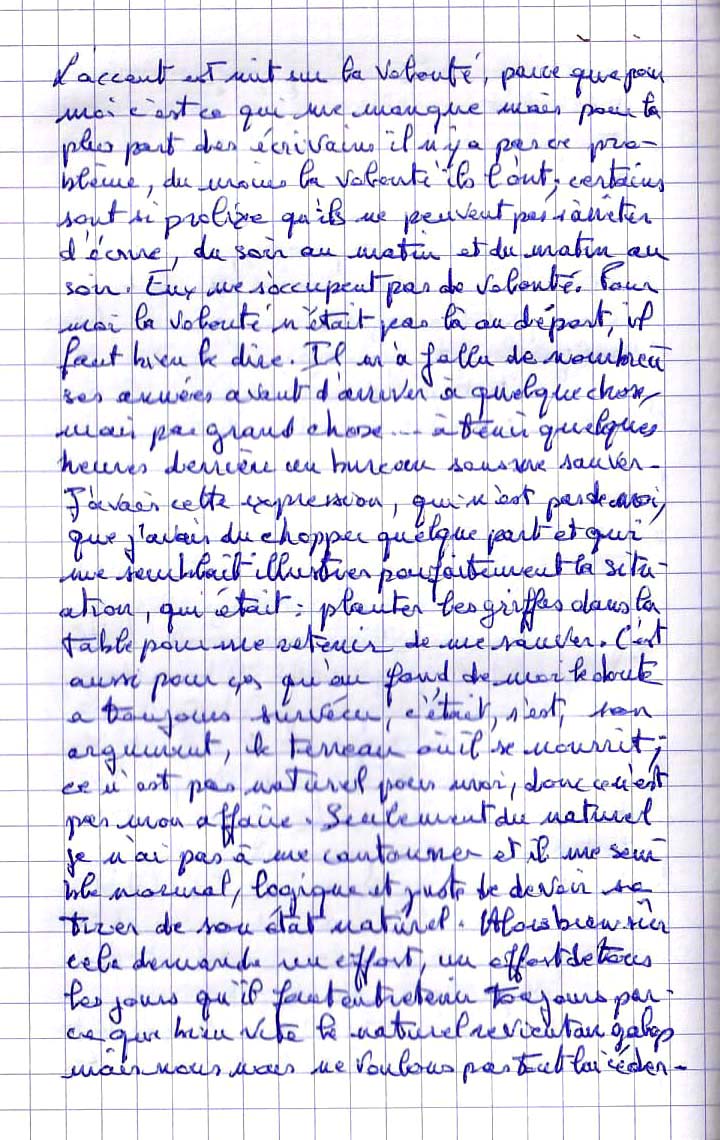 L'accent est mit sur la volonté, parce que pour
moi c'est ce qui me manque mais pour la
plus part des écrivains il n'y a pas ce pro-
blème, du moins la volonté ils l'ont; certains
sont si prolixe qu'ils ne peuvent pas s'arrêter
d'écrire, du soir au matin et du matin au
soir. Eux ne s'occupent pas de volonté. Pour
moi la volonté n'était pas là au départ, il
faut bien le dire. Il m'a fallu de nombreu
ses années avant d'arriver à quelque chose,
mais pas grand chose... à tenir quelques
heures derrière un bureau sans me sauver -
J'avais cette expression, qui n'est pas de moi,
que j'avais du chopper quelque part et qui
me semblait illustrer parfaitement la situ-
ation, qui était: planter les griffes dans la
table pour me retenir de me sauver. C'est
aussi pour ça qu'au fond de moi le doute
a toujours survécu, c'était, s'est, son
argument, le terreau où il se nourrit;
ce n'est pas naturel pour moi, donc ce n'est
pas mon affaire. Seulement du naturel
je n'ai pas à me cantonner et il me sem
ble normal, logique et juste de devoir se
tirer de son état naturel. Alors bien sûr
cela demande un effort, un effort de tous
les jours qu'il faut entretenir toujours par-
ce que bien vite le naturel revient au galop
mais nous nous ne voulons pas tout lui céder -